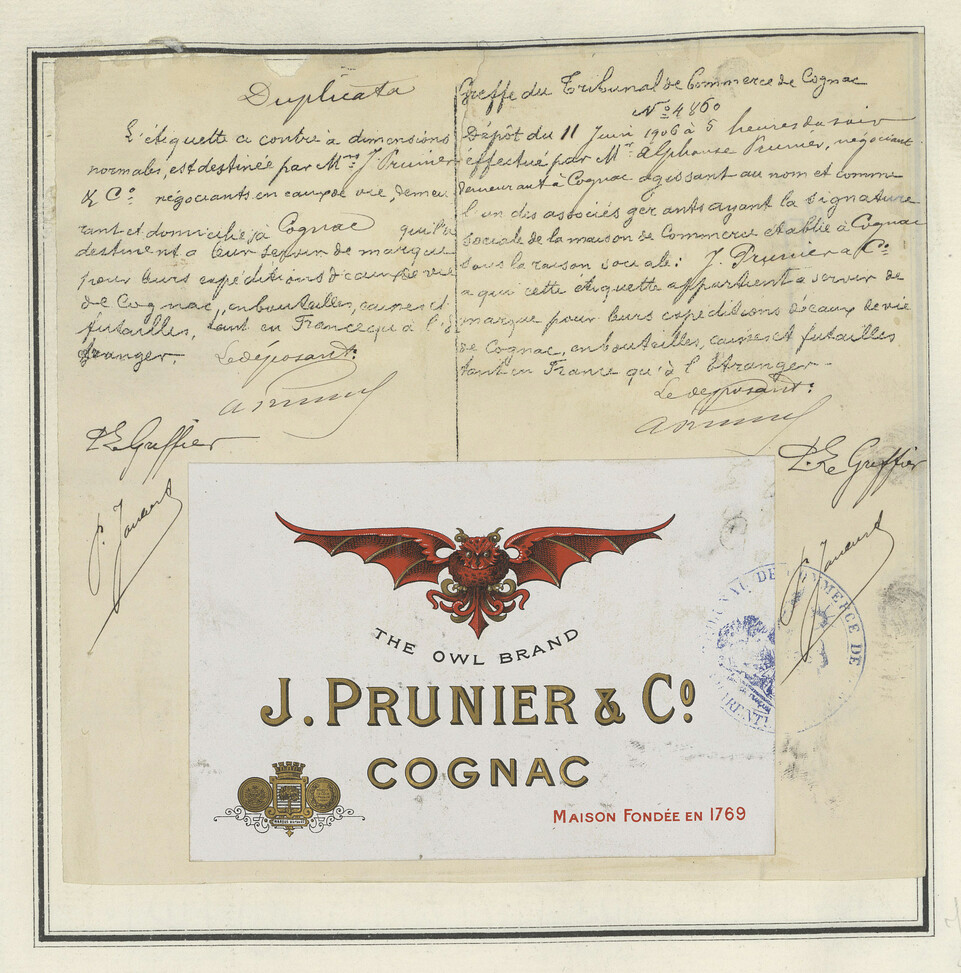 Duplicata
L'étiquette ci contre à dimensions
normales, est destinée par Mrs J Prunier
& Co négociants en eaux de vie, demeu
rant et domiciliés à Cognac qui l'a
destinent à leur servir de marque
pour leurs expéditions d'eaux de vie
de Cognac, en bouteilles, caisses et
futailles, tant en France qu'à l'é
tranger.
Le déposant:
P. Le Greffier
Greffe du Tribunal de Commerce de Cognac
No 4860
Dépôt du 11 Juin 1906 à 5 heures du soir
éffectué par Mr Alphonse Prunier, négociant
demeurant à Cognac agissant au nom et comme
l'un des associés gerants ayant la signature
sociale de la maison de Commerce établie à Cognac
sous la raison sociale: J. Prunier & Co
a qui cette étiquette appartient à servir de
marque pour leurs expéditions d'eaux de vie
de Cognac, en bouteilles, caisses et futailles
tant en France qu'à l'Étranger.
Le déposant:
P. Le Greffier
THE OWL BRAND
J. PRUNIER & Co
COGNAC
MAISON FONDÉE EN 1769
COMMERCE DE